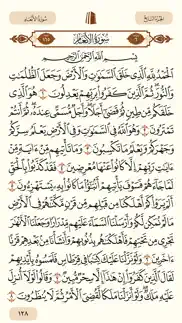 الجزء السابع
سورة الأنعام
٦ سُورَةُ الأَنْعَامِ ١٦٥
بِسْمِ ٱللَّهِ ٱلرَّحْمَٰنِ ٱلرَّحِيمِ
ٱلْحَمْدُ لِلَّهِ ٱلَّذِي خَلَقَ ٱلسَّمَٰوَٰتِ وَٱلْأَرْضَ وَجَعَلَ ٱلظُّلُمَٰتِ
وَٱلنُّورَۖ ثُمَّ ٱلَّذِينَ كَفَرُوا۟ بِرَبِّهِمْ يَعْدِلُونَ ١ هُوَ ٱلَّذِي
خَلَقَكُم مِّن طِينٍ ثُمَّ قَضَىٰٓ أَجَلًاۖ وَأَجَلٌ مُّسَمًّى عِندَهُۥۖ ثُمَّ أَنتُمْ
تَمْتَرُونَ ٢ وَهُوَ ٱللَّهُ فِي ٱلسَّمَٰوَٰتِ وَفِي ٱلْأَرْضِ يَعْلَمُ سِرَّكُمْ
وَجَهْرَكُمْ وَيَعْلَمُ مَا تَكْسِبُونَ ٣ وَمَا تَأْتِيهِم مِّنْ ءَايَةٍ مِّنْ
ءَايَٰتِ رَبِّهِمْ إِلَّا كَانُوا۟ عَنْهَا مُعْرِضِينَ ٤ فَقَدْ كَذَّبُوا۟ بِٱلْحَقِّ
لَمَّا جَآءَهُمْ فَسَوْفَ يَأْتِيهِمْ أَنۢبَٰٓؤُا۟ مَا كَانُوا۟ بِهِۦ يَسْتَهْزِءُونَ ٥
أَلَمْ يَرَوْا۟ كَمْ أَهْلَكْنَا مِن قَبْلِهِم مِّن قَرْنٍ مَّكَّنَّٰهُمْ فِي ٱلْأَرْضِ
مَا لَمْ نُمَكِّن لَّكُمْ وَأَرْسَلْنَا ٱلسَّمَآءَ عَلَيْهِم مِّدْرَارًا وَجَعَلْنَا ٱلْأَنْهَٰرَ
تَجْرِي مِن تَحْتِهِمْ فَأَهْلَكْنَٰهُم بِذُنُوبِهِمْ وَأَنشَأْنَا مِنۢ بَعْدِهِمْ قَرْنًا
ءَاخَرِينَ ٦ وَلَوْ نَزَّلْنَا عَلَيْكَ كِتَٰبًا فِي قِرْطَاسٍ فَلَمَسُوهُ بِأَيْدِيهِمْ
لَقَالَ ٱلَّذِينَ كَفَرُوٓا۟ إِنْ هَٰذَآ إِلَّا سِحْرٌ مُّبِينٌ ٧ وَقَالُوا۟ لَوْلَآ أُنزِلَ
عَلَيْهِ مَلَكٌۖ وَلَوْ أَنزَلْنَا مَلَكًا لَّقُضِيَ ٱلْأَمْرُ ثُمَّ لَا يُنظَرُونَ ٨
١٢٨